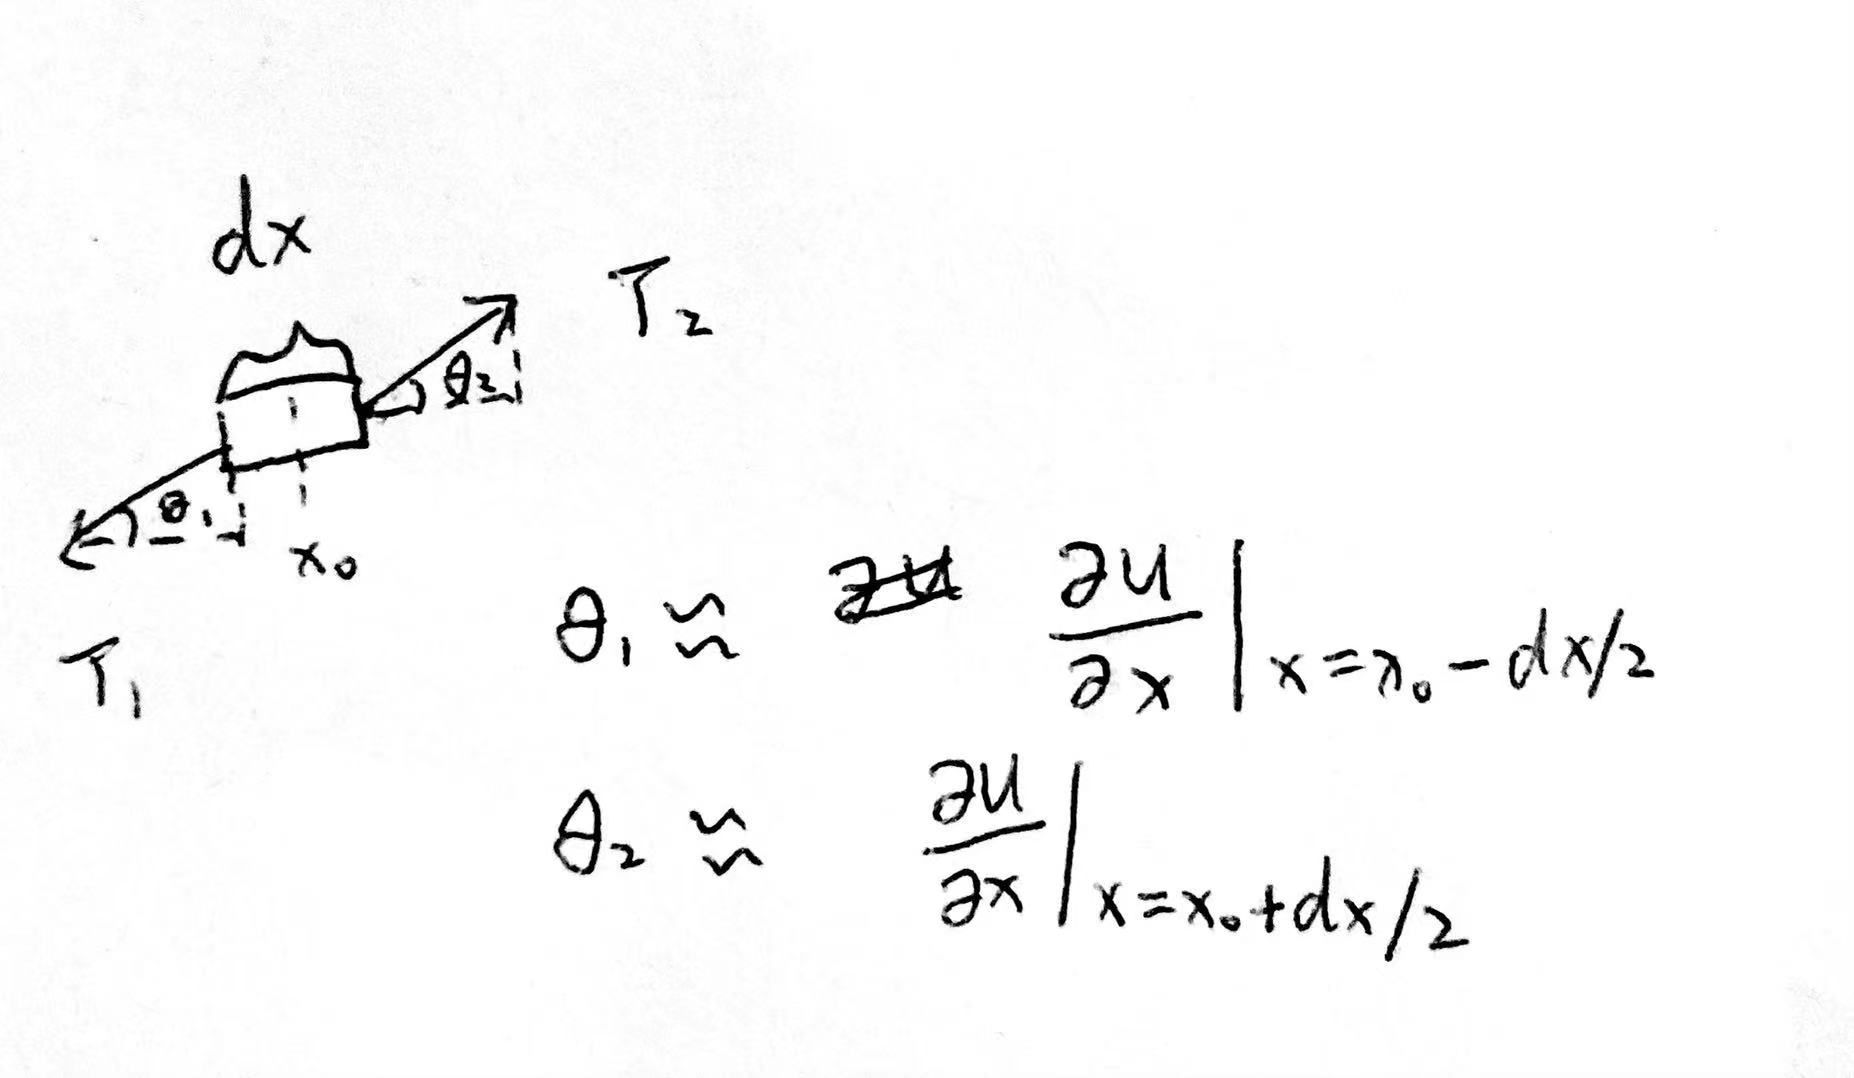 dx
T₂
θ₂
θ₁
x₀
T₁
θ₁ ≈ ∂u/∂x |x=x₀-dx/2
θ₂ ≈ ∂u/∂x |x=x₀+dx/2